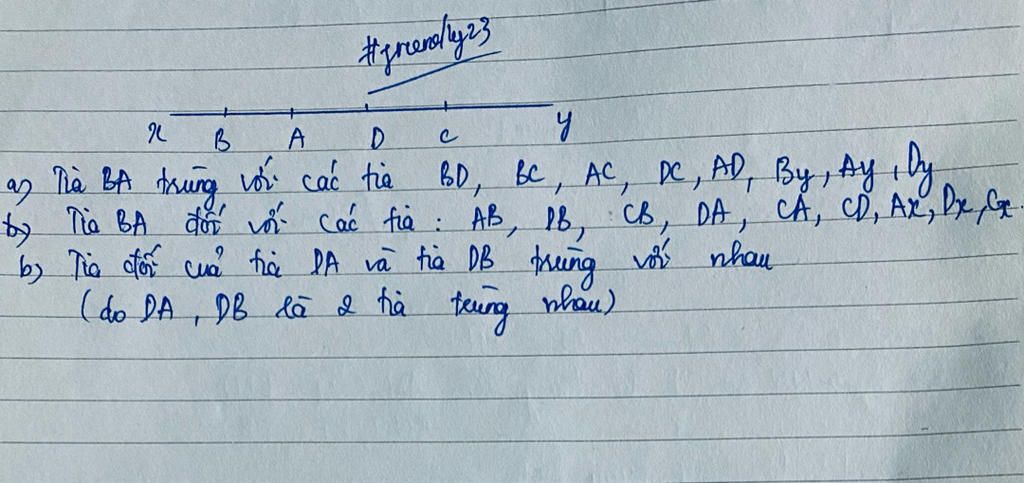 #friendly23
x B A D C y
a) Tia BA trùng với các tia BD, BC, AC, DC, AD, By, Ay, Dy
b) Tia BA đối với các tia : AB, DB, CB, DA, CA, CD, Ax, Dx, Cx.
b) Tia đối của tia DA và tia DB trùng với nhau
(do DA, DB là 2 tia trùng nhau)